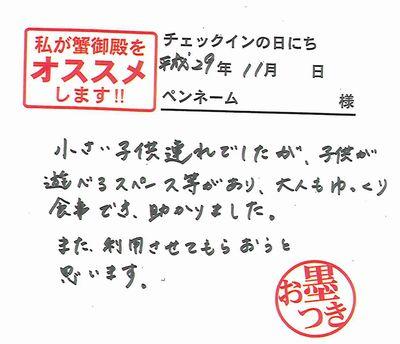 私が蟹御殿を
オススメ
します!!
チェックインの日にち
平成29年 11月 日
ペンネーム 様
小さい子供連れでしたが、子供が
遊べるスペース等があり、大人もゆっくり
食事でき、助かりました。
また、利用させてもらおうと
思います。
お墨つき